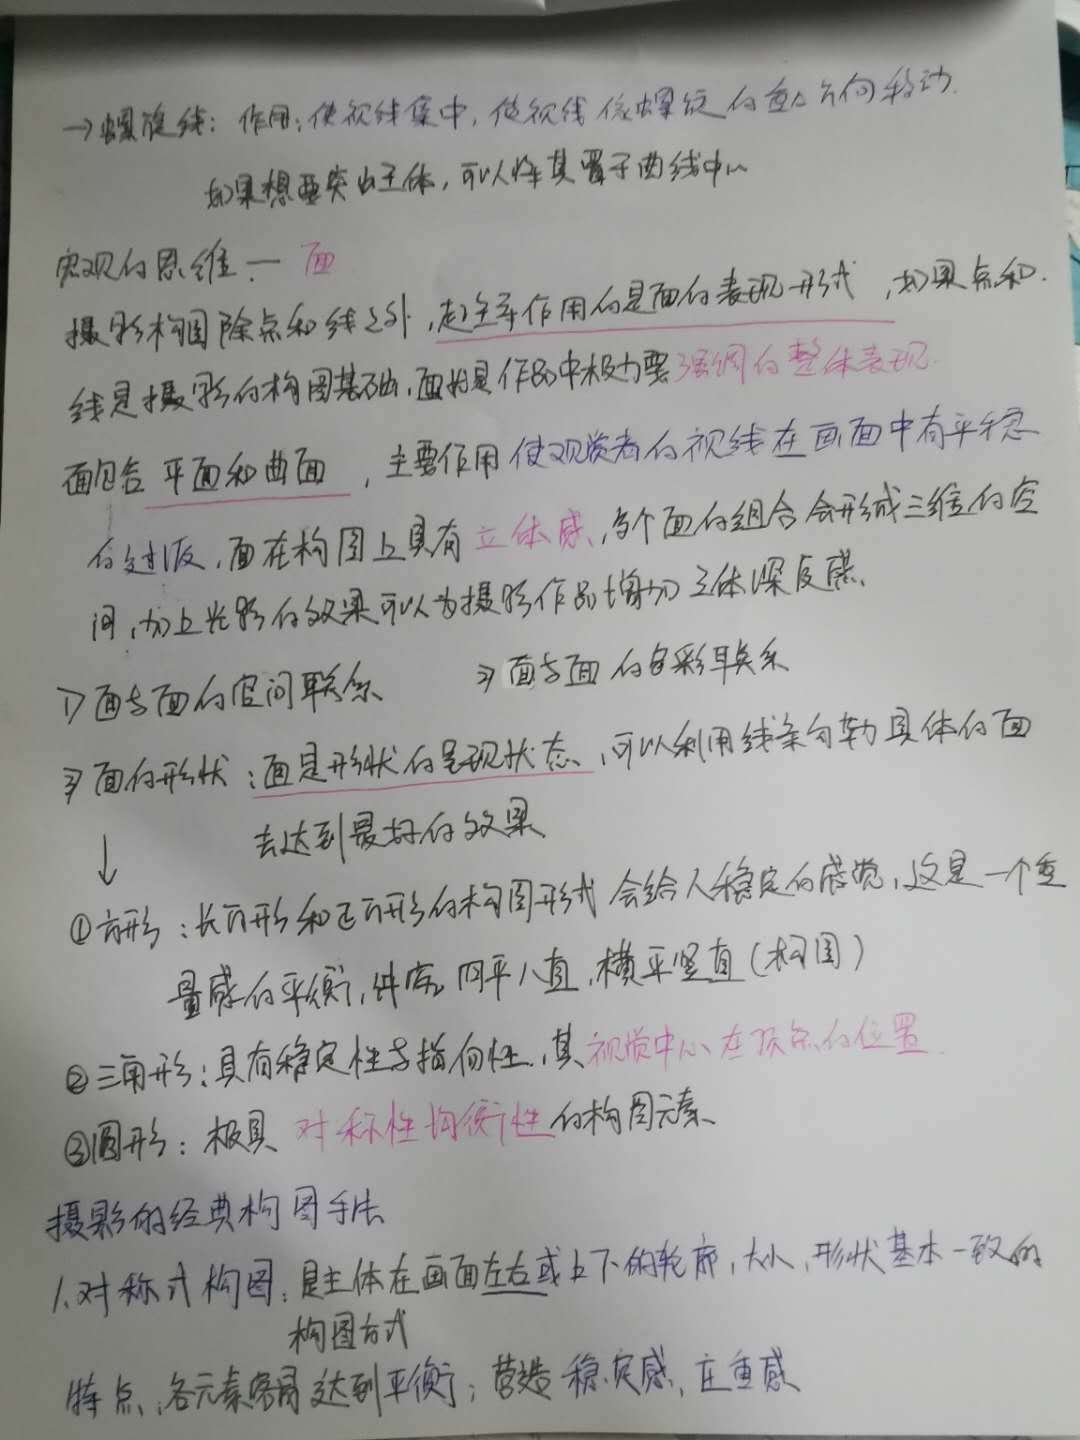 →螺旋线：作用：使视线集中，使视线依螺纹的方向移动.
如果想要突出主体，可以将其置于曲线中心
宏观的思维一 面
摄影构图除点和线之外，起主导作用的是面的表现形式，如果点和
线是摄影的构图基础，面则是作品中极力要强调的整体表现.
面包含 平面和曲面，主要作用 使观赏者的视线在画面中有平稳
的过渡，面在构图上具有 立体感，多个面的组合会形成三维的空
间，加上光影的效果可以为摄影作品增加立体深度感.
1）面与面的空间联系 2）面与面的色彩联系
3）面的形状：面是形状的呈现状态，可以利用线条勾勒具体的面
↓ 去达到最好的效果
①方形：长方形和正方形的构图形式 会给人稳定的感觉，这是一个重
量感的平衡，四平八直，横平竖直（构图）
②三角形：具有稳定性与指向性，其视觉中心在顶点的位置.
③圆形：极具 对称性均衡性的构图元素
摄影的经典构图手法
1.对称式构图：是主体在画面左右或上下的轮廓，大小，形状基本一致的
构图方式
特点：各元素容易达到平衡；营造 稳定感、庄重感